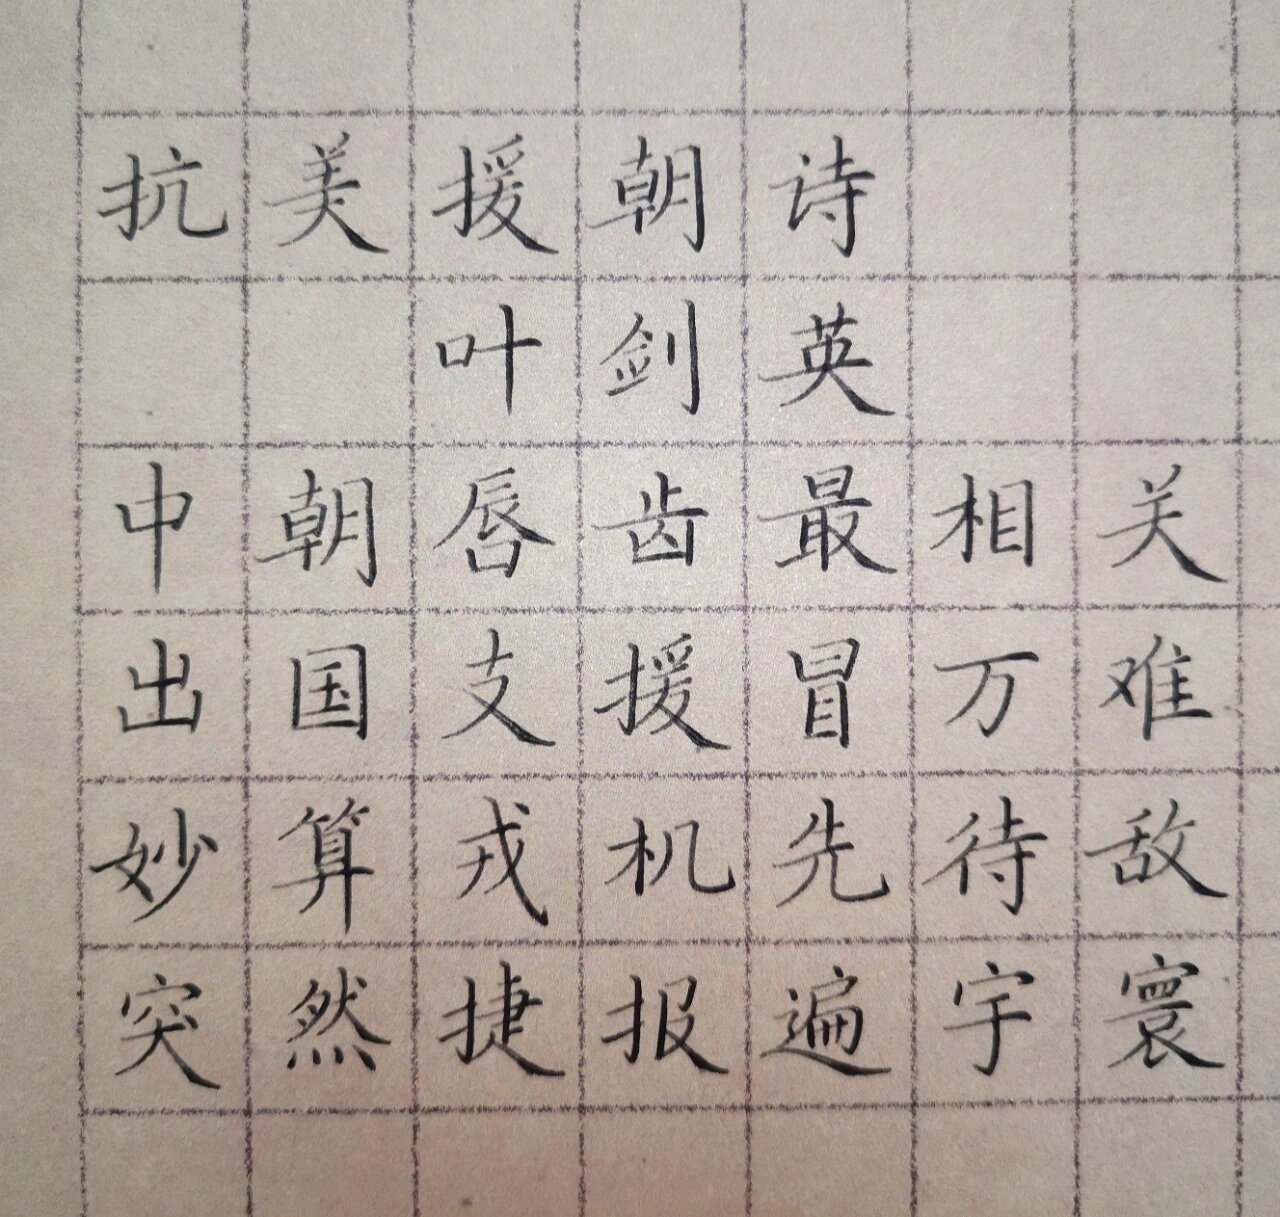 抗美援朝诗
叶剑英
中朝唇齿最相关
出国支援冒万难
妙算戎机先待敌
突然捷报遍宇寰